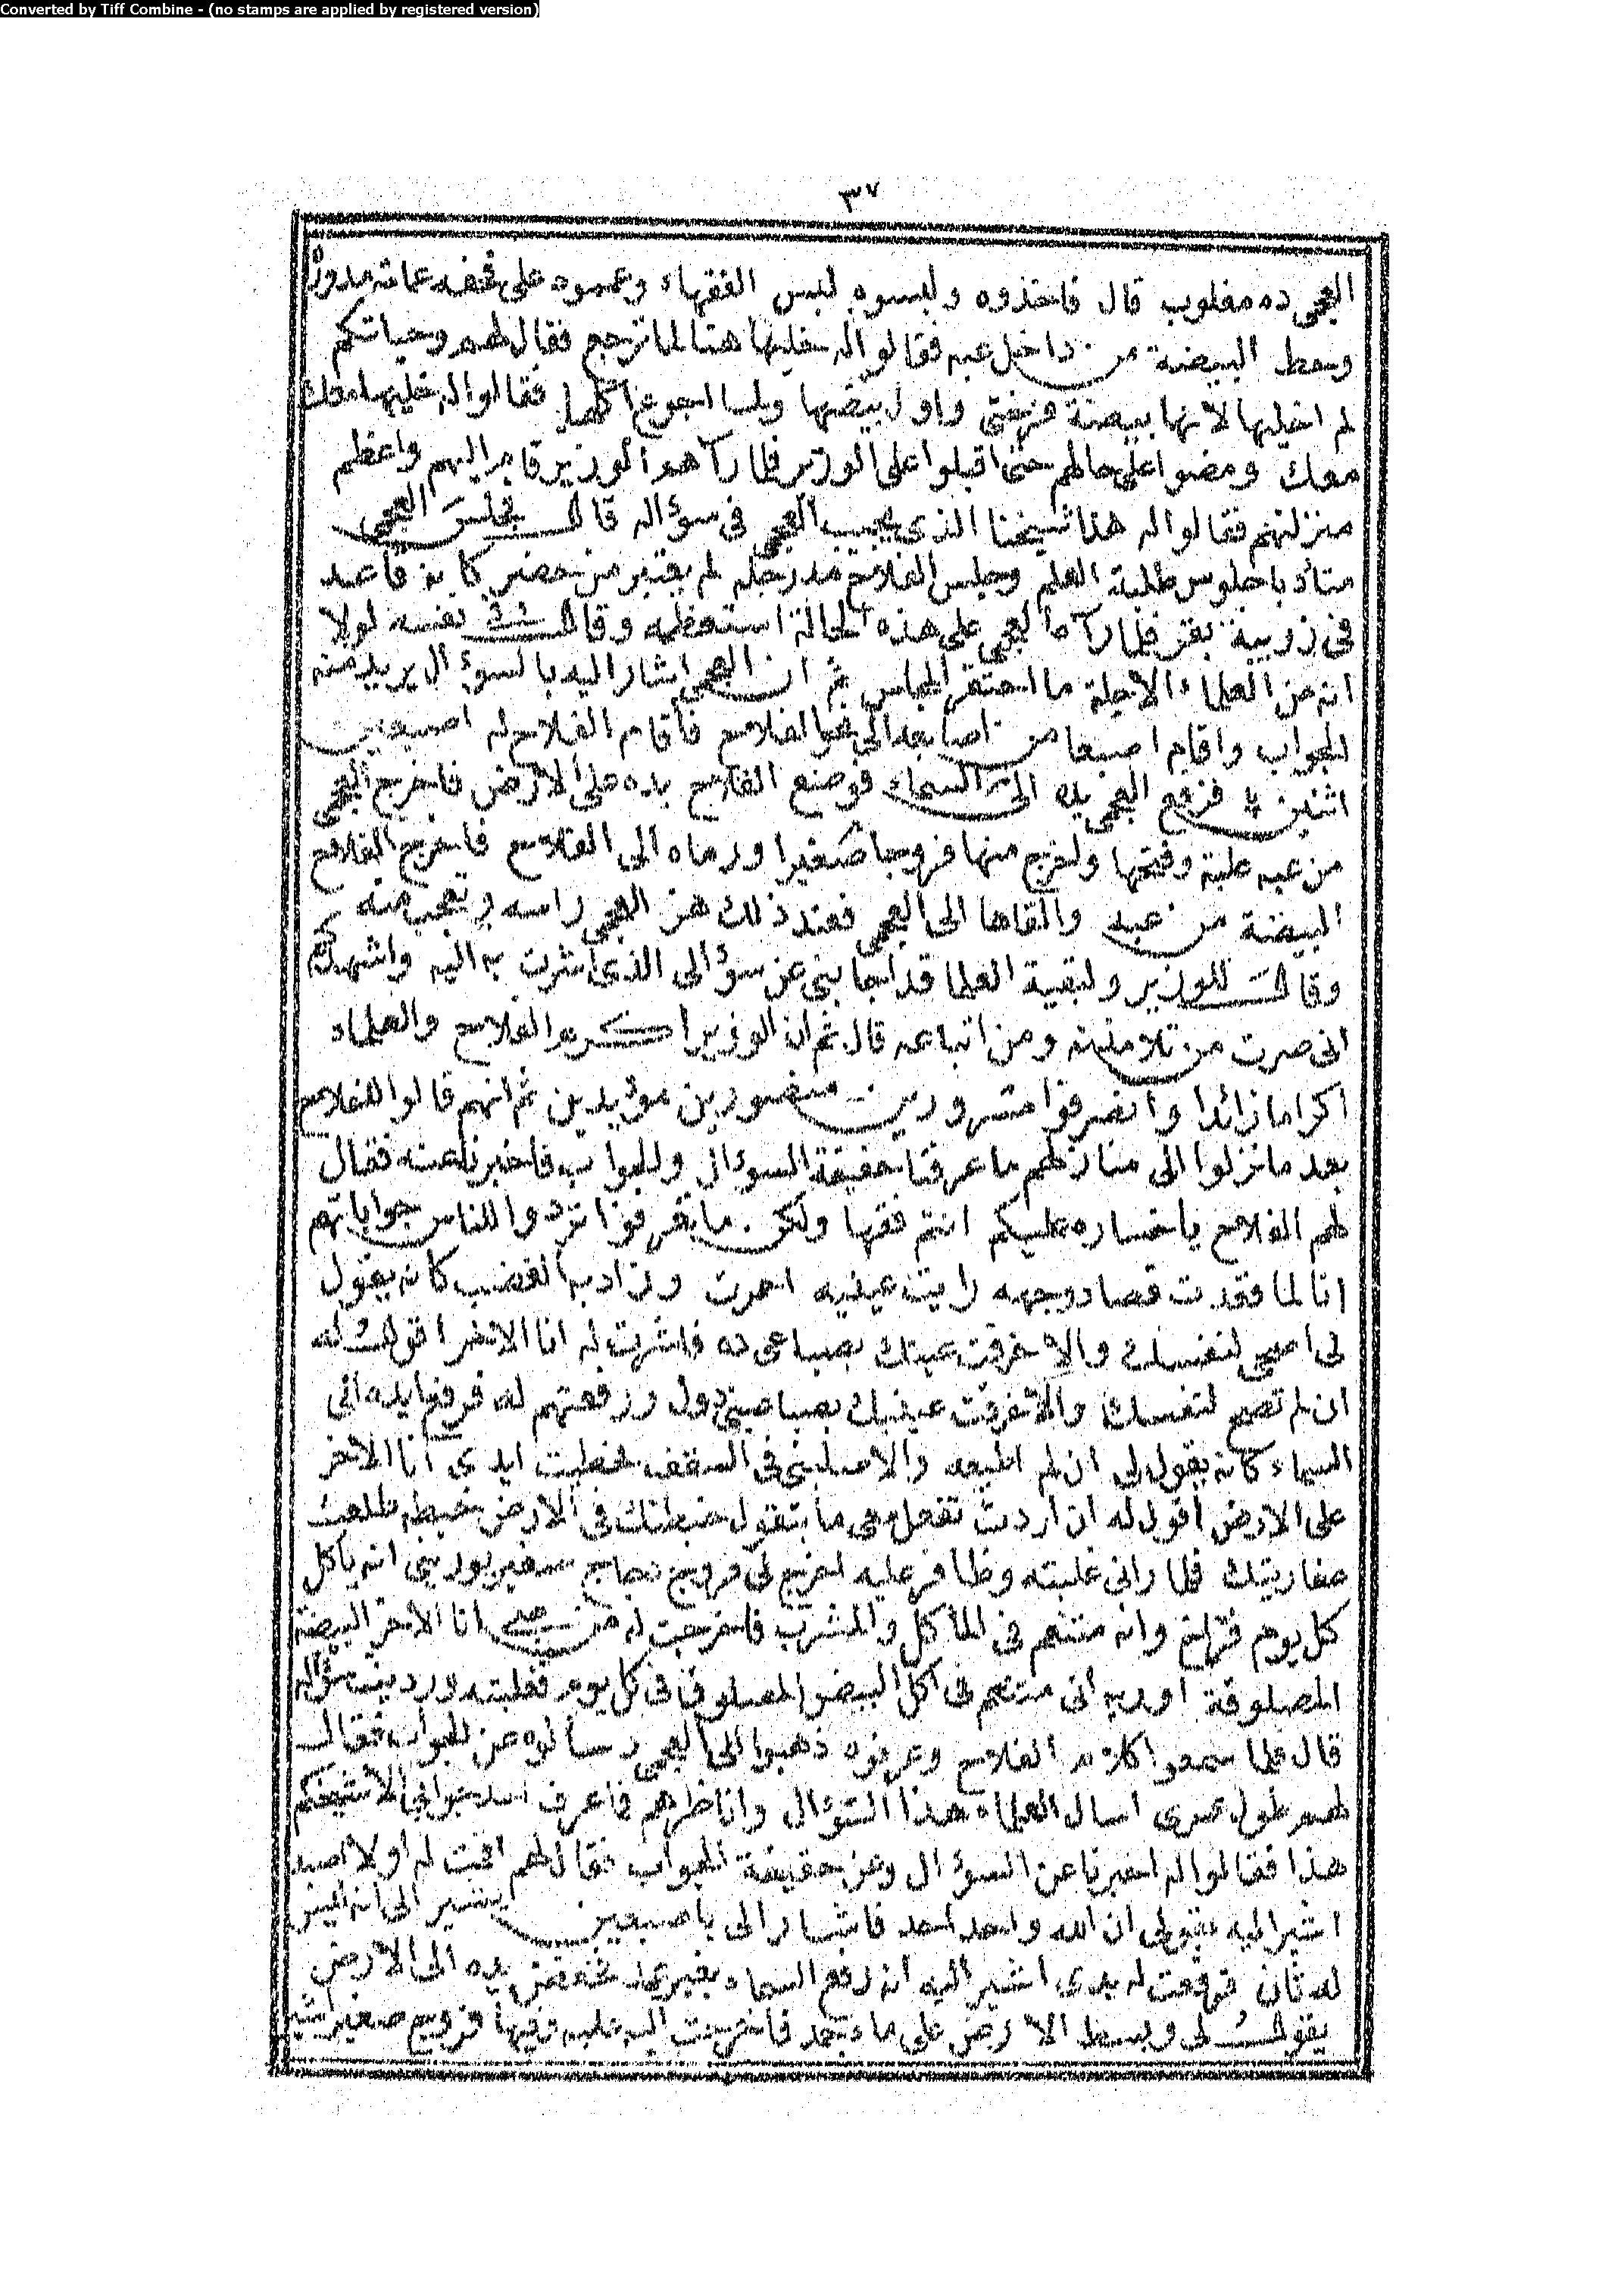 Converted by Tiff Combine - (no stamps are applied by registered version)
٣٧
العجمى ده مغلوب قال فاخذوه ولبسوه لبس الفقهاء وعمموه على قحفه عمامه مدوره
وحط البيضة من داخل عبه فقالوا له خليها هنا لما ترجع فقال لهم وحياتكم
لم اخليها لانها بيضة فرختى واول بيضها ولما اجوع اكلها فقالوا له خليها معك
معك ومضوا على حالهم حتى اقبلوا على الوزير فلما رآهم الوزير قام اليهم واعظم
منزلتهم فقالوا له هذا شيخنا الذى يجيب العجمى فى سوءاله قال فجلس العجمى
متأدبا جلوس طلبة العلم وجلس الفلاح مد رجله لم يعتبر من حضر كانه قاعد
فى زريبة بقر فلما رآه العجمى على هذه الحالة استعظمه وقال فى نفسه لولا
انه من العلماء الاجلة ما احتقر المجلس ثم ان العجمى اشار اليه بالسوءال يريد منه
الجواب واقام اصبعا من اصابعه الى نحو الفلاح فأقام الفلاح له اصبعين
اثنين فرفع العجمى يده الى السماء فوضع الفلاح يده على الارض فاخرج العجمى
من عبه علبة وفتحها واخرج منها فروجا صغيرا ورماه الى الفلاح فاخرج الفلاح
البيضة من عبه والقاها الى العجمى فعند ذلك هز العجمى راسه وتعجب منه
وقال للوزير ولبقية العلما قد اجابنى عن سوءالى الذى اشرت به اليه واشهدكم
انى صرت من تلامذته ومن اتباعه قال ثم ان الوزير اكرم الفلاح والعلماء
اكراما زائدا وانصرفوا مسرورين منصورين مؤيدين ثم انهم قالوا للفلاح
بعد ما نزلوا الى منازلهم ما عرفنا حقيقة السوءال والجواب فاخبرنا عنه فقال
لهم الفلاح يا خساره عليكم انتم فقها ولكن ما تعرفوا تردوا للناس جواباتهم
انا لما قعدت قصاد وجهه رايت عينيه احمرت وزاد به الغضب كانه يقول
لى اصحى لنفسك والا خرقت عينك بصباعى ده فاشرت له انا الاخر اقول له
ان لم تصحى لنفسك والا خرقت عينيك بصباعينى دول ورفعتهم له فرفع ايده الى
السماء كانه يقول لى ان لم اطيعه والا علقنى فى السقف فحطيت ايدى انا الاخر
على الارض اقول له ان اردت تفعل معى ما بتقول خبطتك فى الارض خبطه طلعت
عفاريتك فلما رانى غلبته وظافر عليه اخرج لى فروج دجاج صغير يورينى انه ياكل
كل يوم فراخ وانه متنعم فى الماكل والمشرب فاخرجت له من عبى انا الاخر البيضة
المصلوقة اوريه انى متنعم فى اكل البيض المصلوق فى كل يوم فغلبته ورديت سؤاله
قال فلما سمعوا كلام الفلاح وعرفوه ذهبوا الى العجمى وسألوه عن الجواب فقال
لهم طول عمرى اسال العلماء هذا السوءال واناظرهم فما عرف احد جوابى الا شيخكم
هذا فقالوا له اخبرنا عن السوءال وعن حقيقة الجواب فقال لهم اقمت له اولا اصبع
اشير اليه بقولى ان الله واحد احد فاشار الى باصبعين يشير الى انه ليس
له ثان فرفعت له يدى اشير اليه انه رفع السماء بغير عمد فخفض يده الى الارض
يقول لى وبسط الارض على ماء جمد فاخرجت اليه علبه وفيها فروج صغير اشير